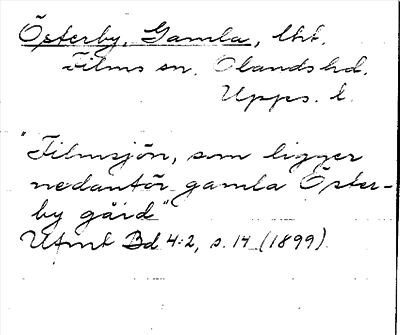 Österby, Gamla, lht.
Films sn. Olands hd.
Upps. l.
"Filmsjön, som ligger
nedanför gamla Öster-
by gård"
Utmt Bd 4:2, s. 14 (1899).